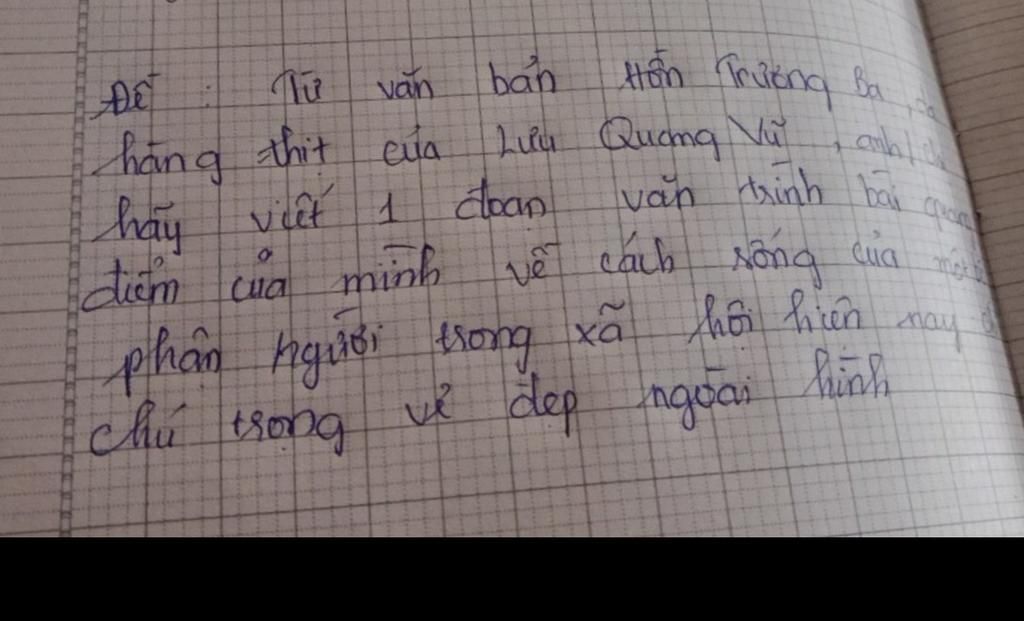 Đề : Từ văn bản Hồn Trương Ba, da
hàng thịt của Lưu Quang Vũ, anh/chị
hãy viết 1 đoạn văn trình bài quan
điểm của mình về cách sống của một bộ
phận người trong xã hội hiện nay
chú trọng vẻ đẹp ngoài hình